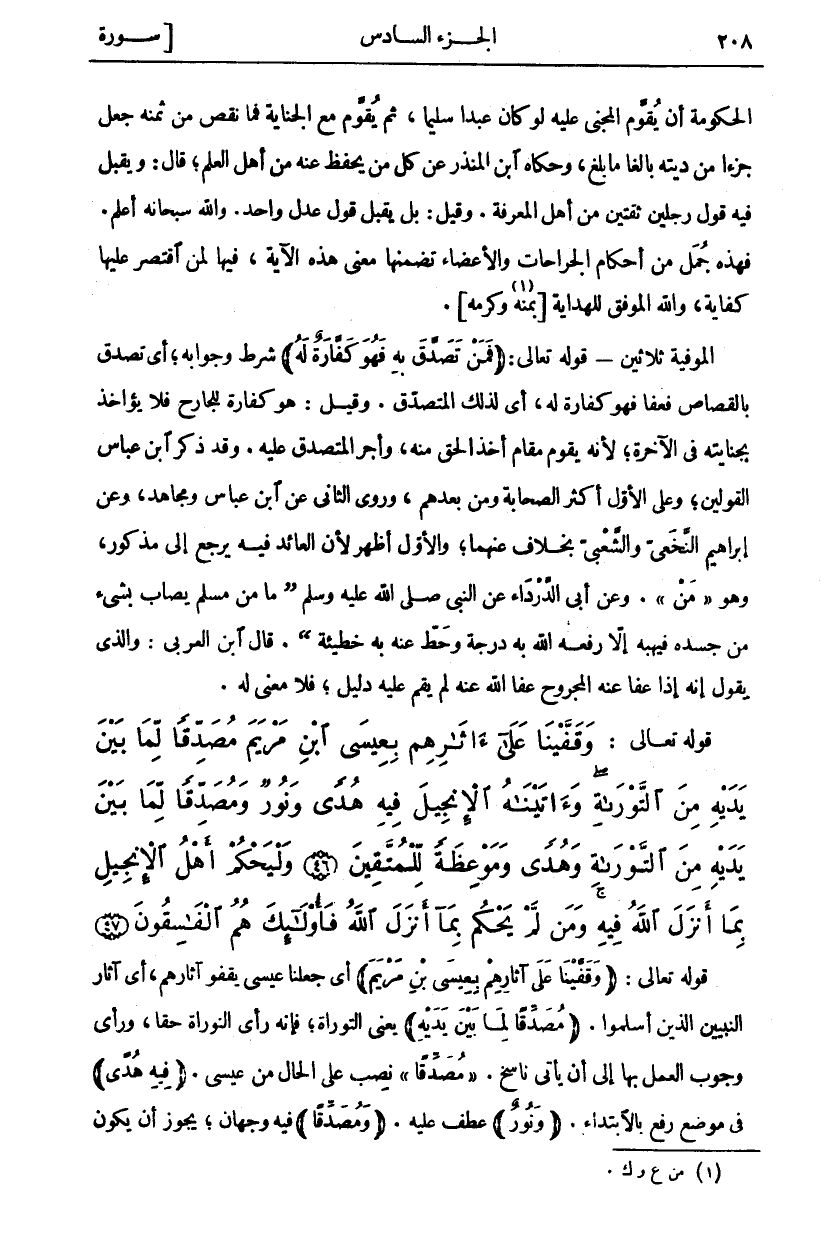 ٢٠٨ الجـزء السـادس [ ســـورة
الحكومة أن يُقوَّم المجنى عليه لو كان عبدا سليما ، ثم يُقوَّم مع الجناية فما نقص من ثمنه جعل
جزءا من ديته بالغا ما بلغ، وحكاه آبن المنذر عن كل من يحفظ عنه من أهل العلم؛ قال: ويقبل
فيه قول رجلين ثقتين من أهل المعرفة . وقيل: بل يقبل قول عدل واحد. والله سبحانه أعلم.
فهذه جُمَل من أحكام الجراحات والأعضاء تضمنها معنى هذه الآية ، فيها لمن آقتصر عليها
كفاية، والله الموفق للهداية [بمنّه(١) وكرمه] .
الموفية ثلاثين — قوله تعالى: ﴿فَمَنْ تَصَدَّقَ بِهِ فَهُوَ كَفَّارَةٌ لَهُ﴾ شرط وجوابه؛ أى تصدق
بالقصاص فعفا فهو كفارة له، أى لذلك المتصدّق . وقيـل : هو كفارة للجارح فلا يؤاخذ
بجنايته فى الآخرة؛ لأنه يقوم مقام أخذ الحق منه، وأجر المتصدق عليه . وقد ذكر آبن عباس
القولين؛ وعلى الأوّل أكثر الصحابة ومن بعدهم ، وروى الثانى عن آبن عباس ومجاهد، وعن
إبراهيم النَّخَعىّ والشَّعْبىّ بخـلاف عنهما؛ والأوّل أظهر لأن العائد فيـه يرجع إلى مذكور،
وهو « مَنْ » . وعن أبى الدَّرْدَاء عن النبى صـلى الله عليه وسلم ” ما من مسلم يصاب بشىء
من جسده فيهبه إلّا رفعـه الله به درجة وحَطّ عنه به خطيئة “ . قال آبن العربى : والذى
يقول إنه إذا عفا عنه المجروح عفا الله عنه لم يقم عليه دليل ؛ فلا معنى له .
قوله تعـالى : وَقَفَّيْنَا عَلَىٰٓ ءَاثَـٰرِهِم بِعِيسَى ٱبْنِ مَرْيَمَ مُصَدِّقًا لِّمَا بَيْنَ
يَدَيْهِ مِنَ ٱلتَّوْرَىٰةِ ۖ وَءَاتَيْنَـٰهُ ٱلْإِنجِيلَ فِيهِ هُدًى وَنُورٌ وَمُصَدِّقًا لِّمَا بَيْنَ
يَدَيْهِ مِنَ ٱلتَّوْرَىٰةِ وَهُدًى وَمَوْعِظَةً لِّلْمُتَّقِينَ ﴿٤٦﴾ وَلْيَحْكُمْ أَهْلُ ٱلْإِنجِيلِ
بِمَآ أَنزَلَ ٱللَّهُ فِيهِ ۚ وَمَن لَّمْ يَحْكُم بِمَآ أَنزَلَ ٱللَّهُ فَأُولَـٰٓئِكَ هُمُ ٱلْفَـٰسِقُونَ ﴿٤٧﴾
قوله تعالى : ﴿وَقَفَّيْنَا عَلَى آثَارِهِمْ بِعِيسَى بْنِ مَرْيَمَ﴾ أى جعلنا عيسى يقفو آثارهم، أى آثار
النبيين الذين أسلموا . ﴿مُصَدِّقًا لِمَا بَيْنَ يَدَيْهِ﴾ يعنى التوراة؛ فإنه رأى التوراة حقا ، ورأى
وجوب العمل بها إلى أن يأتى ناسخ . « مُصَدِّقًا » نصب على الحال من عيسى . ﴿فِيهِ هُدًى﴾
فى موضع رفع بالآبتداء . ﴿وَنُورٌ﴾ عطف عليه . ﴿وَمُصَدِّقًا﴾ فيه وجهان ؛ يجوز أن يكون
(١) من ع و ك .